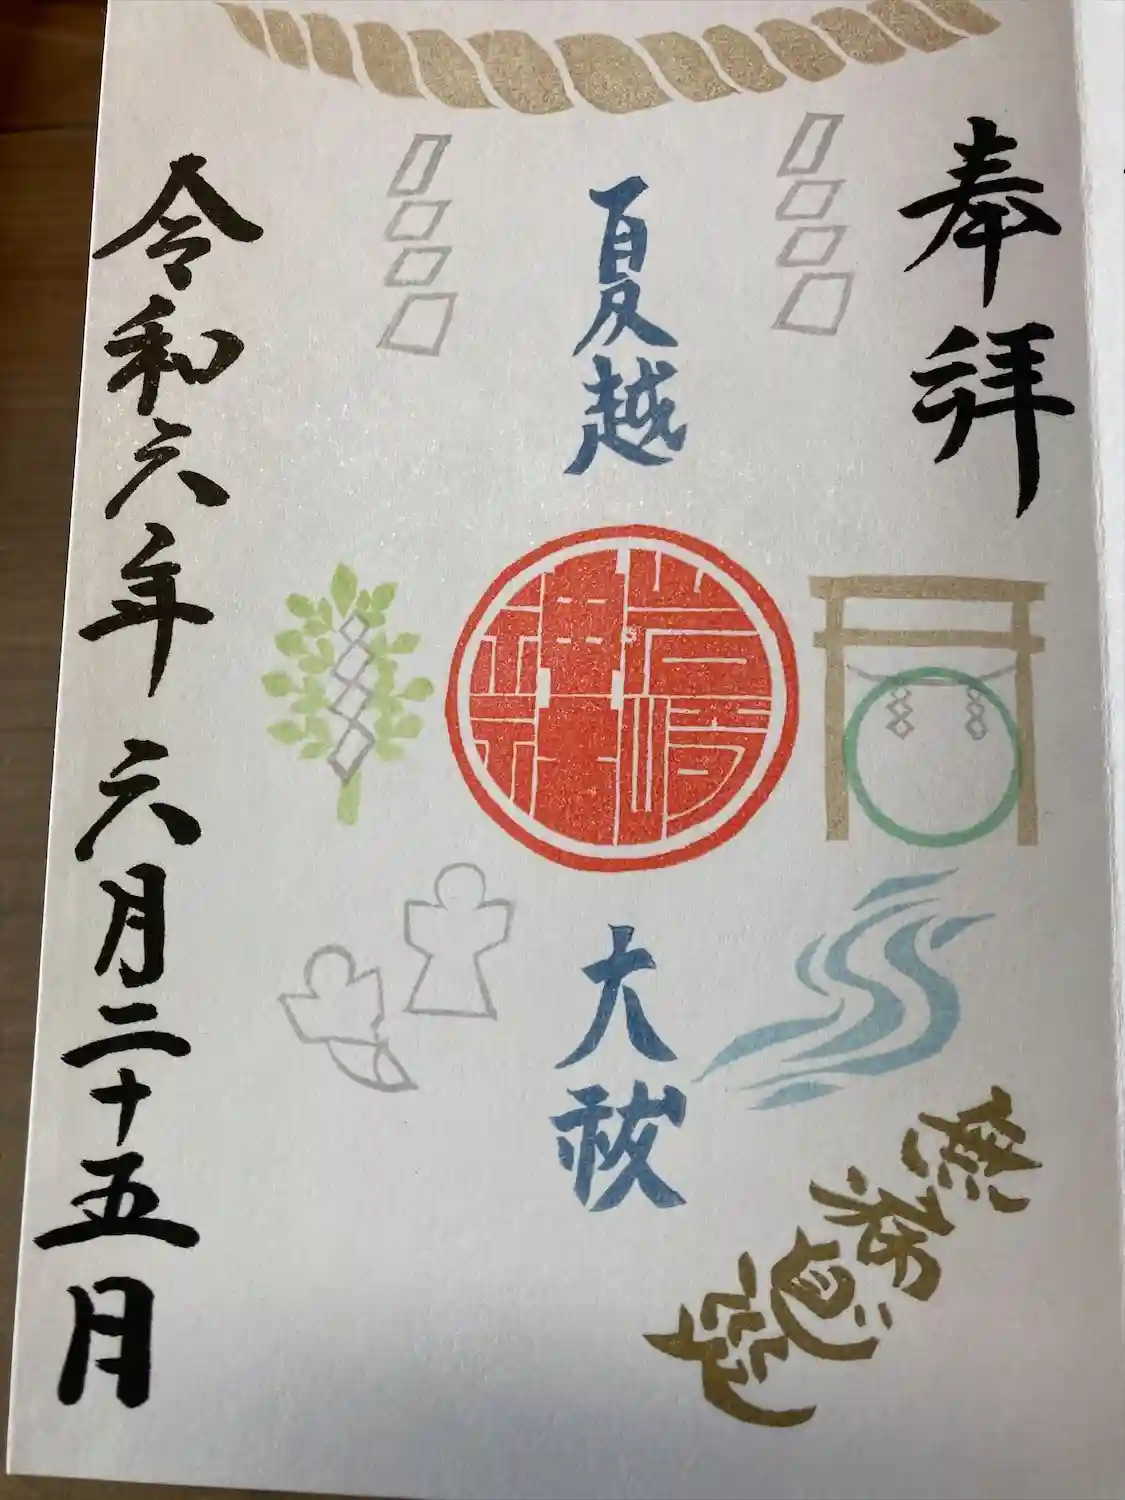 奉拝
夏越
神社
大祓
無病息災
令和六年 六月二十五月